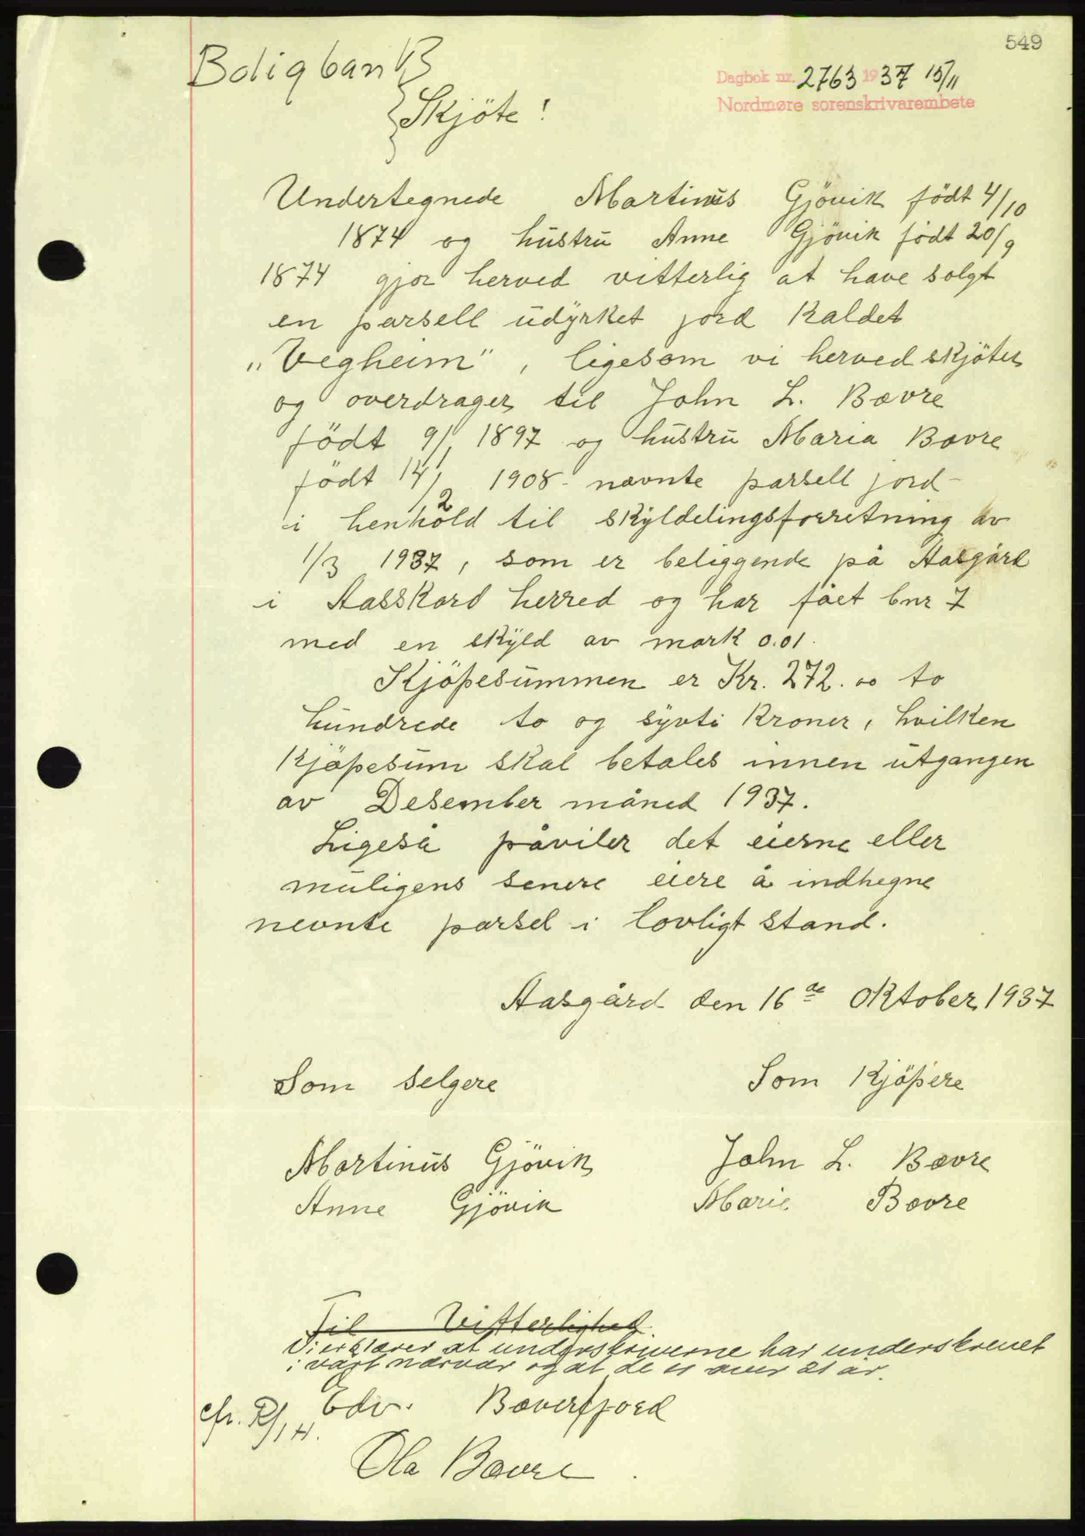 549
Boligban B
Dagbok nr. 2763 1937 15/11
Nordmøre sorenskrivarembete
Skjöte!
Undertegnede Martinus Gjövik födt 4/10
1874 og hustru Anne Gjövik födt 20/9
1874 gjør herved vitterlig at have solgt
en parsell udyrket jord kaldet
"Vegheim", ligesom vi herved skjöter
og overdrager til John L. Bævre
födt 9/1 1897 og hustru Maria Bævre
födt 14/2 1908 nævnte parsell jord
i henhold til skyldelingsforretning av
1/3 1937, som er beliggende på Aasgård
i Aasskard herred og har fået bnr 7
med en skyld av mark 0.01.
Kjöpesummen er Kr. 272.00 to
hundrede to og sytti kroner, hvilken
kjöpesum skal betales innen utgangen
av Desember måned 1937.
Ligeså påviler det eierne eller
muligens senere eiere å indhegne
nevnte parsel i lovligt stand.
Aasgård den 16 de Oktober 1937
Som selgere Som Kjöpere
Martinus Gjövik John L. Bævre
Anne Gjövik Marie Bævre
Til Vitterlighed
Vi erklærer at underskriverne har underskrevet
i vårt nærvær og at de er over 21 år.
Edv. Bæverfjord
cfr. R/14.
Ola Bævre